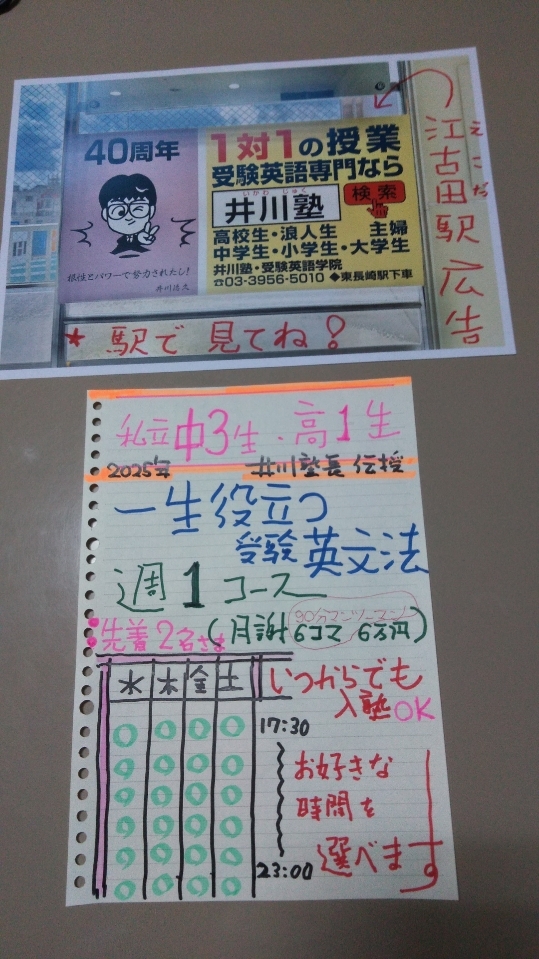 40周年
根性とパワーで努力されたし!
1対1の授業
受験英語専門なら
いかわ じゅく
井川塾 検索
高校生・浪人生 主婦
中学生・小学生・大学生
井川塾・受験英語学院
☎03-3956-5010 ◆東長崎駅下車
えこだ
江古田駅広告
* 駅で見てね!
私立中3生・高1生
2025年 井川塾長伝授
一生役立つ
受験英文法
週1コース
90分マンツーマン
先着2名さま(月謝6コマ 6万円)
水 木 金 土
いつからでも
入塾OK
17:30
お好きな
時間を
選べます
23:00